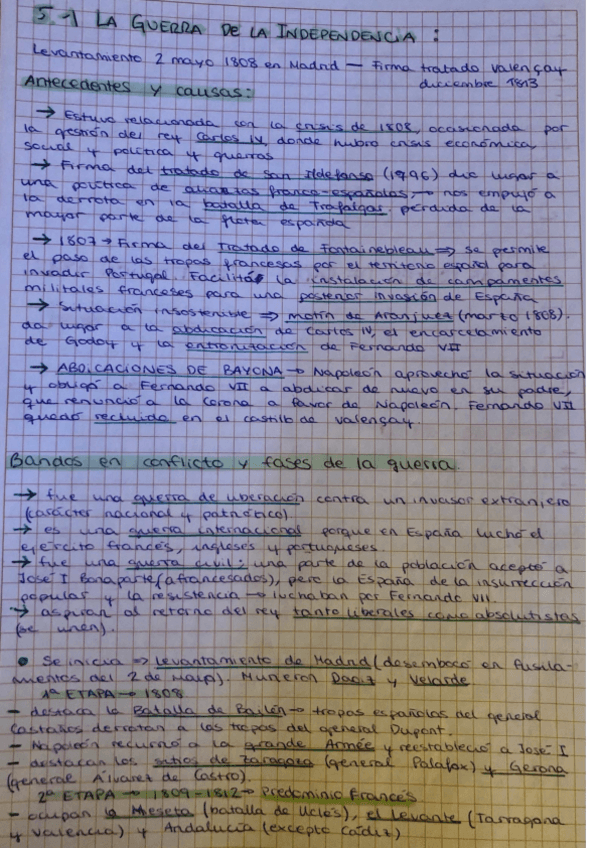 5.1 LA GUERRA DE LA INDEPENDENCIA :
Levantamiento 2 mayo 1808 en Madrid — Firma tratado Valençay
diciembre 1813
Antecedentes y causas:
→ Estuvo relacionada con la crisis de 1808, ocasionada por
la gestión del rey Carlos IV, donde hubo crisis económica,
social y política y guerras
→ Firma del tratado de San Ildefonso (1796) dio lugar a
una política de alianzas franco-españolas, → nos empujó a
la derrota en la batalla de Trafalgar, perdida de la
mayor parte de la flota española
→ 1807 → Firma del Tratado de Fontainebleau ⇒ se permite
el paso de las tropas francesas por el territorio español para
invadir Portugal. Facilitó la instalación de campamentes
militales franceses para una posterior invasión de España
→ Situación insostenible ⇒ motín de Aranjuez (marzo 1808).
da lugar a la abdicación de Carlos IV, el encarcelamiento
de Godoy y la entronización de Fernando VII
→ ABDICACIONES DE BAYONA → Napoleón aprovechó la situación
y obligó a Fernando VII a abdicar de nuevo en su padre,
que renunció a la Corona a favor de Napoleón. Fernando VII
quedó recluido en el castillo de Valençay.
Bandos en conflicto y fases de la guerra
→ fue una guerra de liberación contra un invasor extranjero
(carácter nacional y patriótico)
→ es una guerra internacional porque en España luchó el
ejército francés, ingleses y portugueses.
→ fue una guerra civil: una parte de la población aceptó a
José I Bonaparte (afrancesados), pero la España de la insurrección
popular y la resistencia → luchaban por Fernando VII.
→ aspiran al retorno del rey tanto liberales como absolutistas
(se unen).
• Se inicia ⇒ levantamiento de Madrid (desembocó en fusila-
mientos del 2 de mayo). Murieron Daoiz y Velarde
1ª ETAPA → 1808
– destaca la Batalla de Bailén → tropas españolas del general
Castaños derrotan a las tropas del general Dupont.
– Napoleón recurrió a la grande Armée y reestableció a José I
– destacan los sitios de Zaragoza (general Palafox) y Gerona
(general Álvarez de Castro).
2ª ETAPA → 1809-1812 → Predominio Francés
– ocupan la Meseta (batalla de Uclés), el levante (Tarragona
y Valencia) y Andalucía (excepto Cádiz)